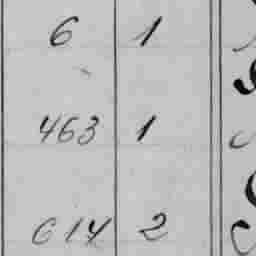 6 1
463 1
614 2